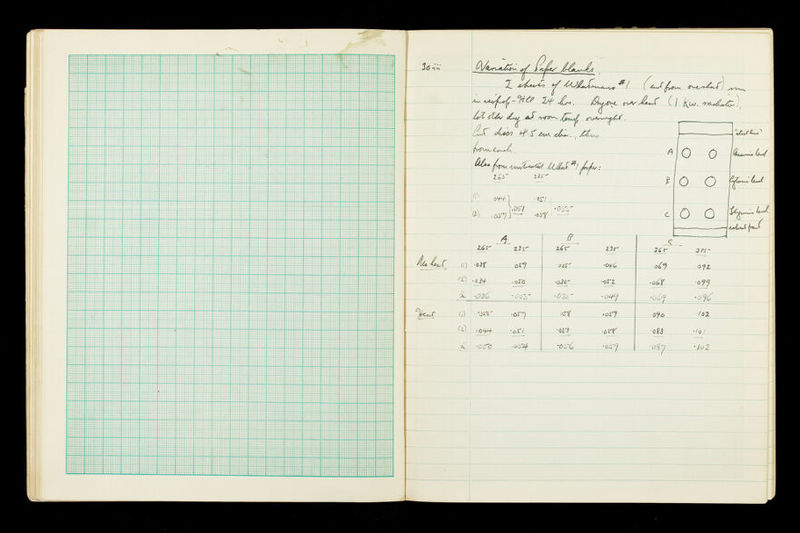 Variation of Paper blanks.
2 sheets of Whatmans #1 (cut from one sheet) run
in isoprop-HCl 24 hrs. Dry one over heat (1 Kw. radiator).
Let other dry at room temp overnight.
Cut discs 4.5 cm diam., thus
from each.
Also from untreated What #1 paper:
265 285
(1) .044 .051
(2) .057 .058
.051 .055
"start line"
A Guanine level
B Cytosine level
C Thymine level
solvent front
A B C
265 285 265 285 265 285
No heat (1) .038 .059 .035 .046 .069 .092
(2) .034 .050 .035 .052 .068 .099
.036 .055 .035 .049 .069 .096
Heat (1) .057 .059 .090 .102
(2) .044 .051 .058 .083 .101
.050 .054 .056 .059 .087 .102